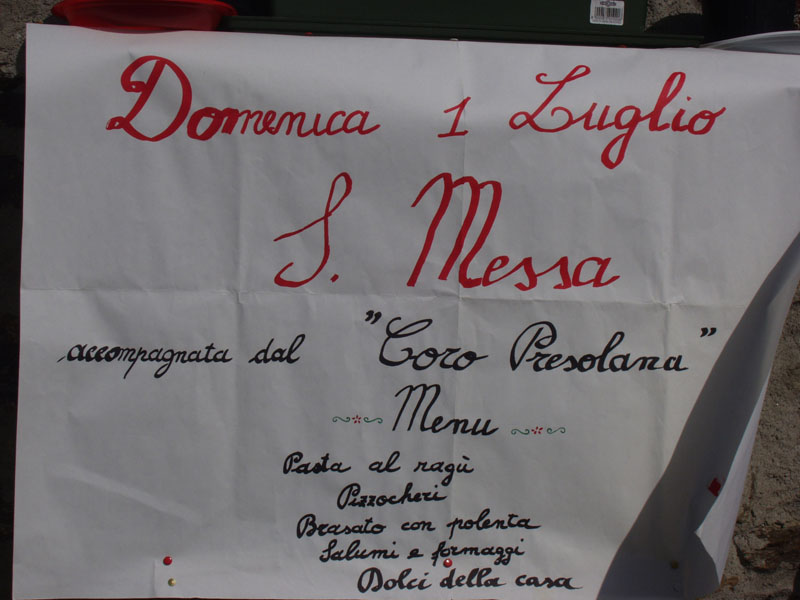 Domenica 1 Luglio
S. Messa
accompagnata dal "Coro Presolana"
Menu
Pasta al ragù
Pizzocheri
Brasato con polenta
Salumi e formaggi
Dolci della casa